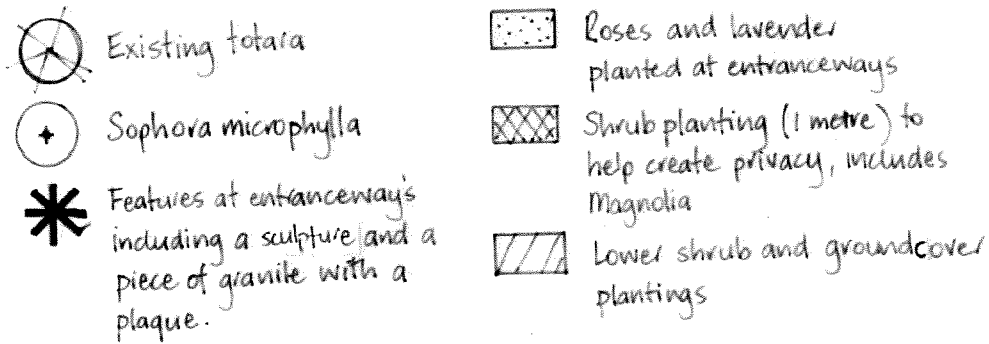 Existing totara
Sophora microphylla
Features at entranceway's
including a sculpture and a
piece of granite with a
plaque.
Roses and lavender
planted at entranceways
Shrub planting (1 metre) to
help create privacy, includes
Magnolia
Lower shrub and groundcover
plantings